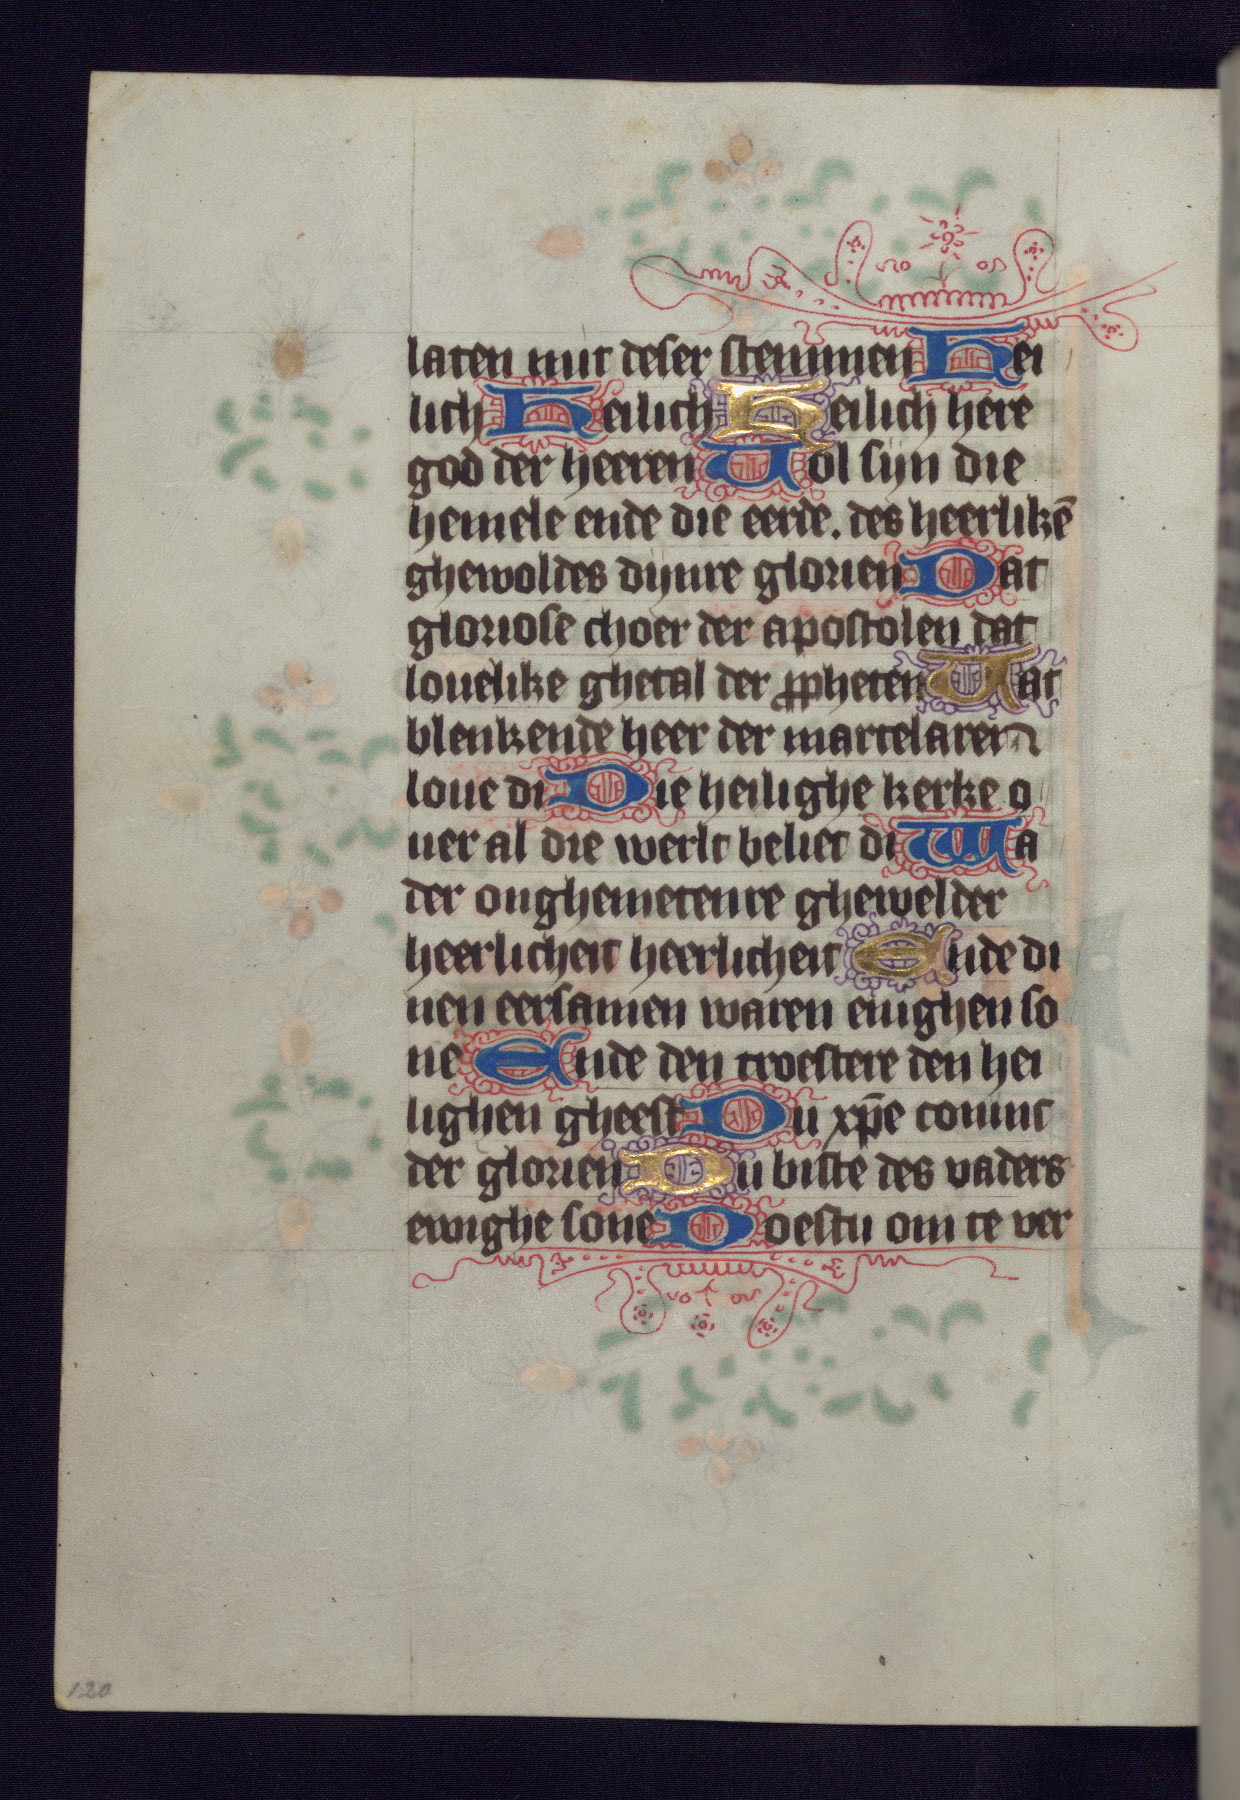 laten mit deser stemmen Hei
lich Heilich Heilich here
god der heeren Uol sijn die
hemele ende die eerde. des heerlikē
ghewoldes dijnre glorien Dat
gloriose choer der apostolen dat
louelike ghetal der ꝓpheten Dat
blenkende heer der martelaren
loue di Die heilighe kerke o
uer al die werlt beliet di Wa
der onghemetenre ghewelder
heerlicheit heerlicheit Ende di
nen eersamen waren enighen so
ne Ende den troestere den hei
lighen gheest Du xp̄e coninc
der glorien Du biste des vaders
ewighe sone Doestu om te ver
120